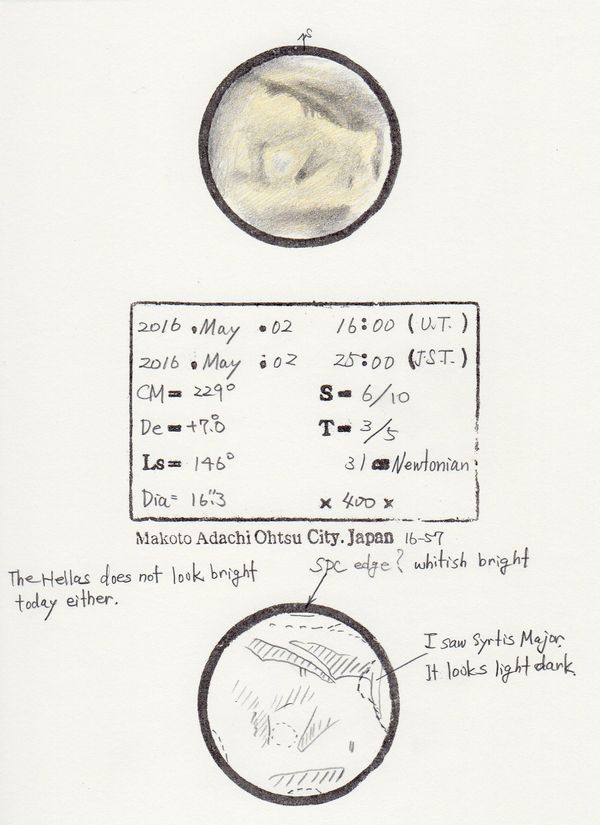 S
2016 .May .02 16:00 (U.T.)
2016 .May .02 25:00 (J.S.T.)
CM= 229° S= 6/10
De= +7.°0 T= 3/5
Ls= 146° 31 cm Newtonian
Dia= 16".3 × 400 ×
Makoto Adachi Ohtsu City. Japan 16-57
The Hellas does not look bright
today either.
SPC edge? whitish bright
I saw Syrtis Major.
It looks light dark.